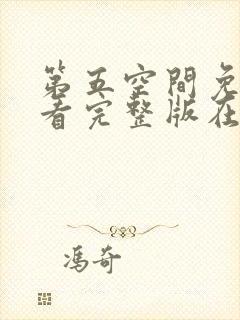 第五空間免
看完整版在
馮奇